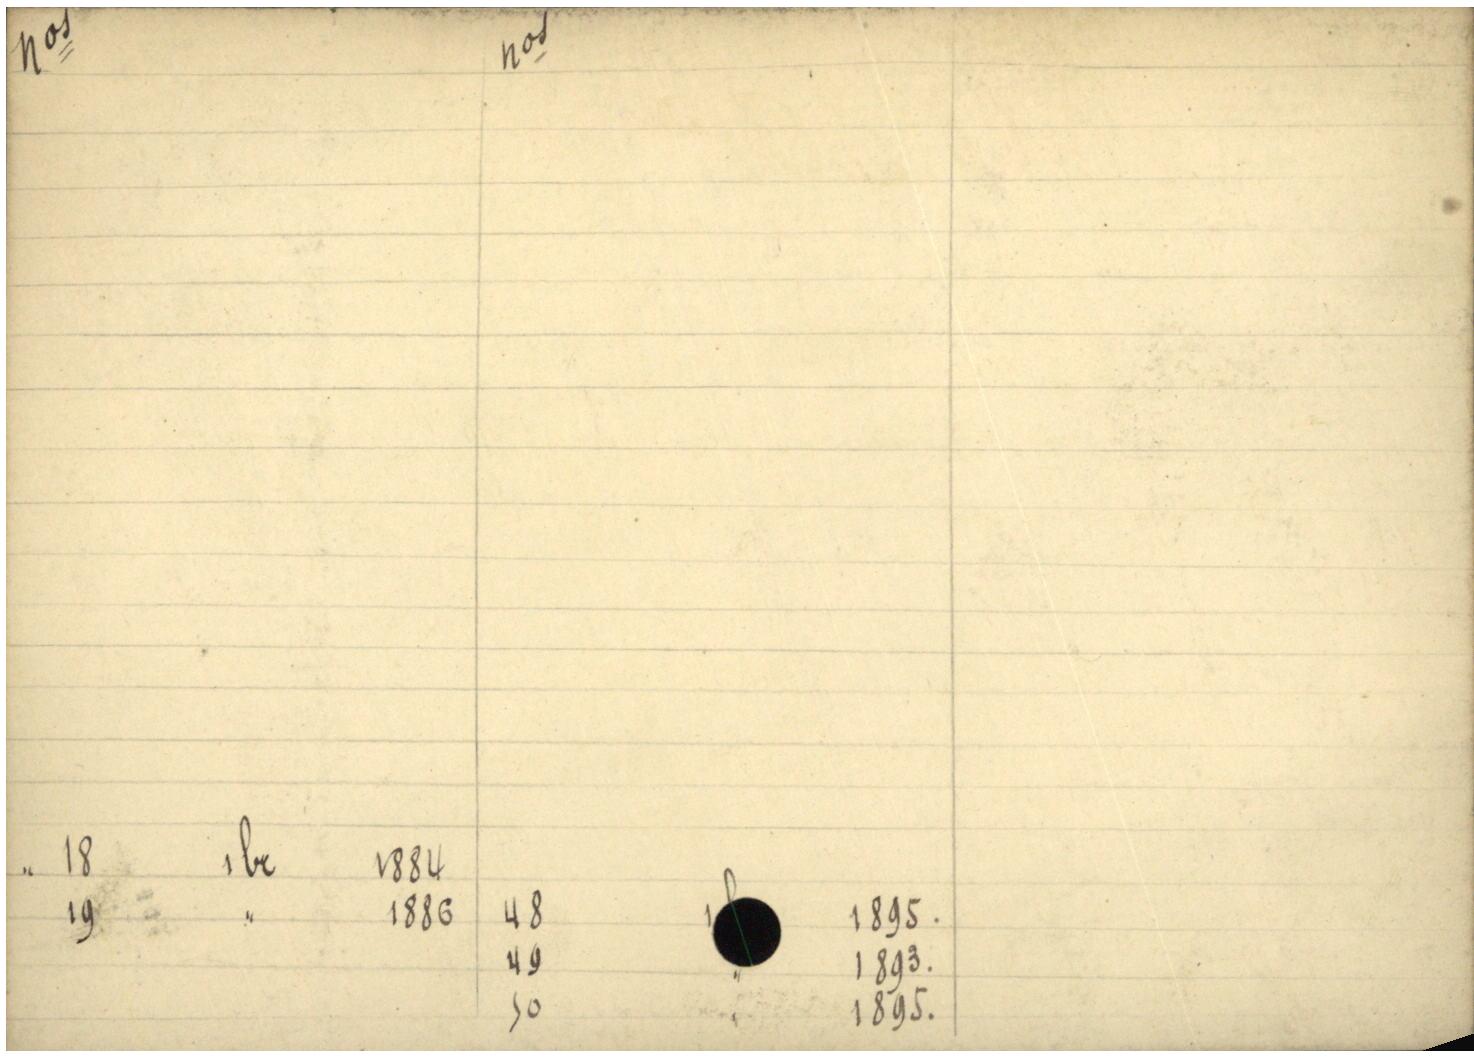 nos
" 18 1 br 1884
19 " 1886
nos
48 1 1895.
49 " 1893.
50 " 1895.